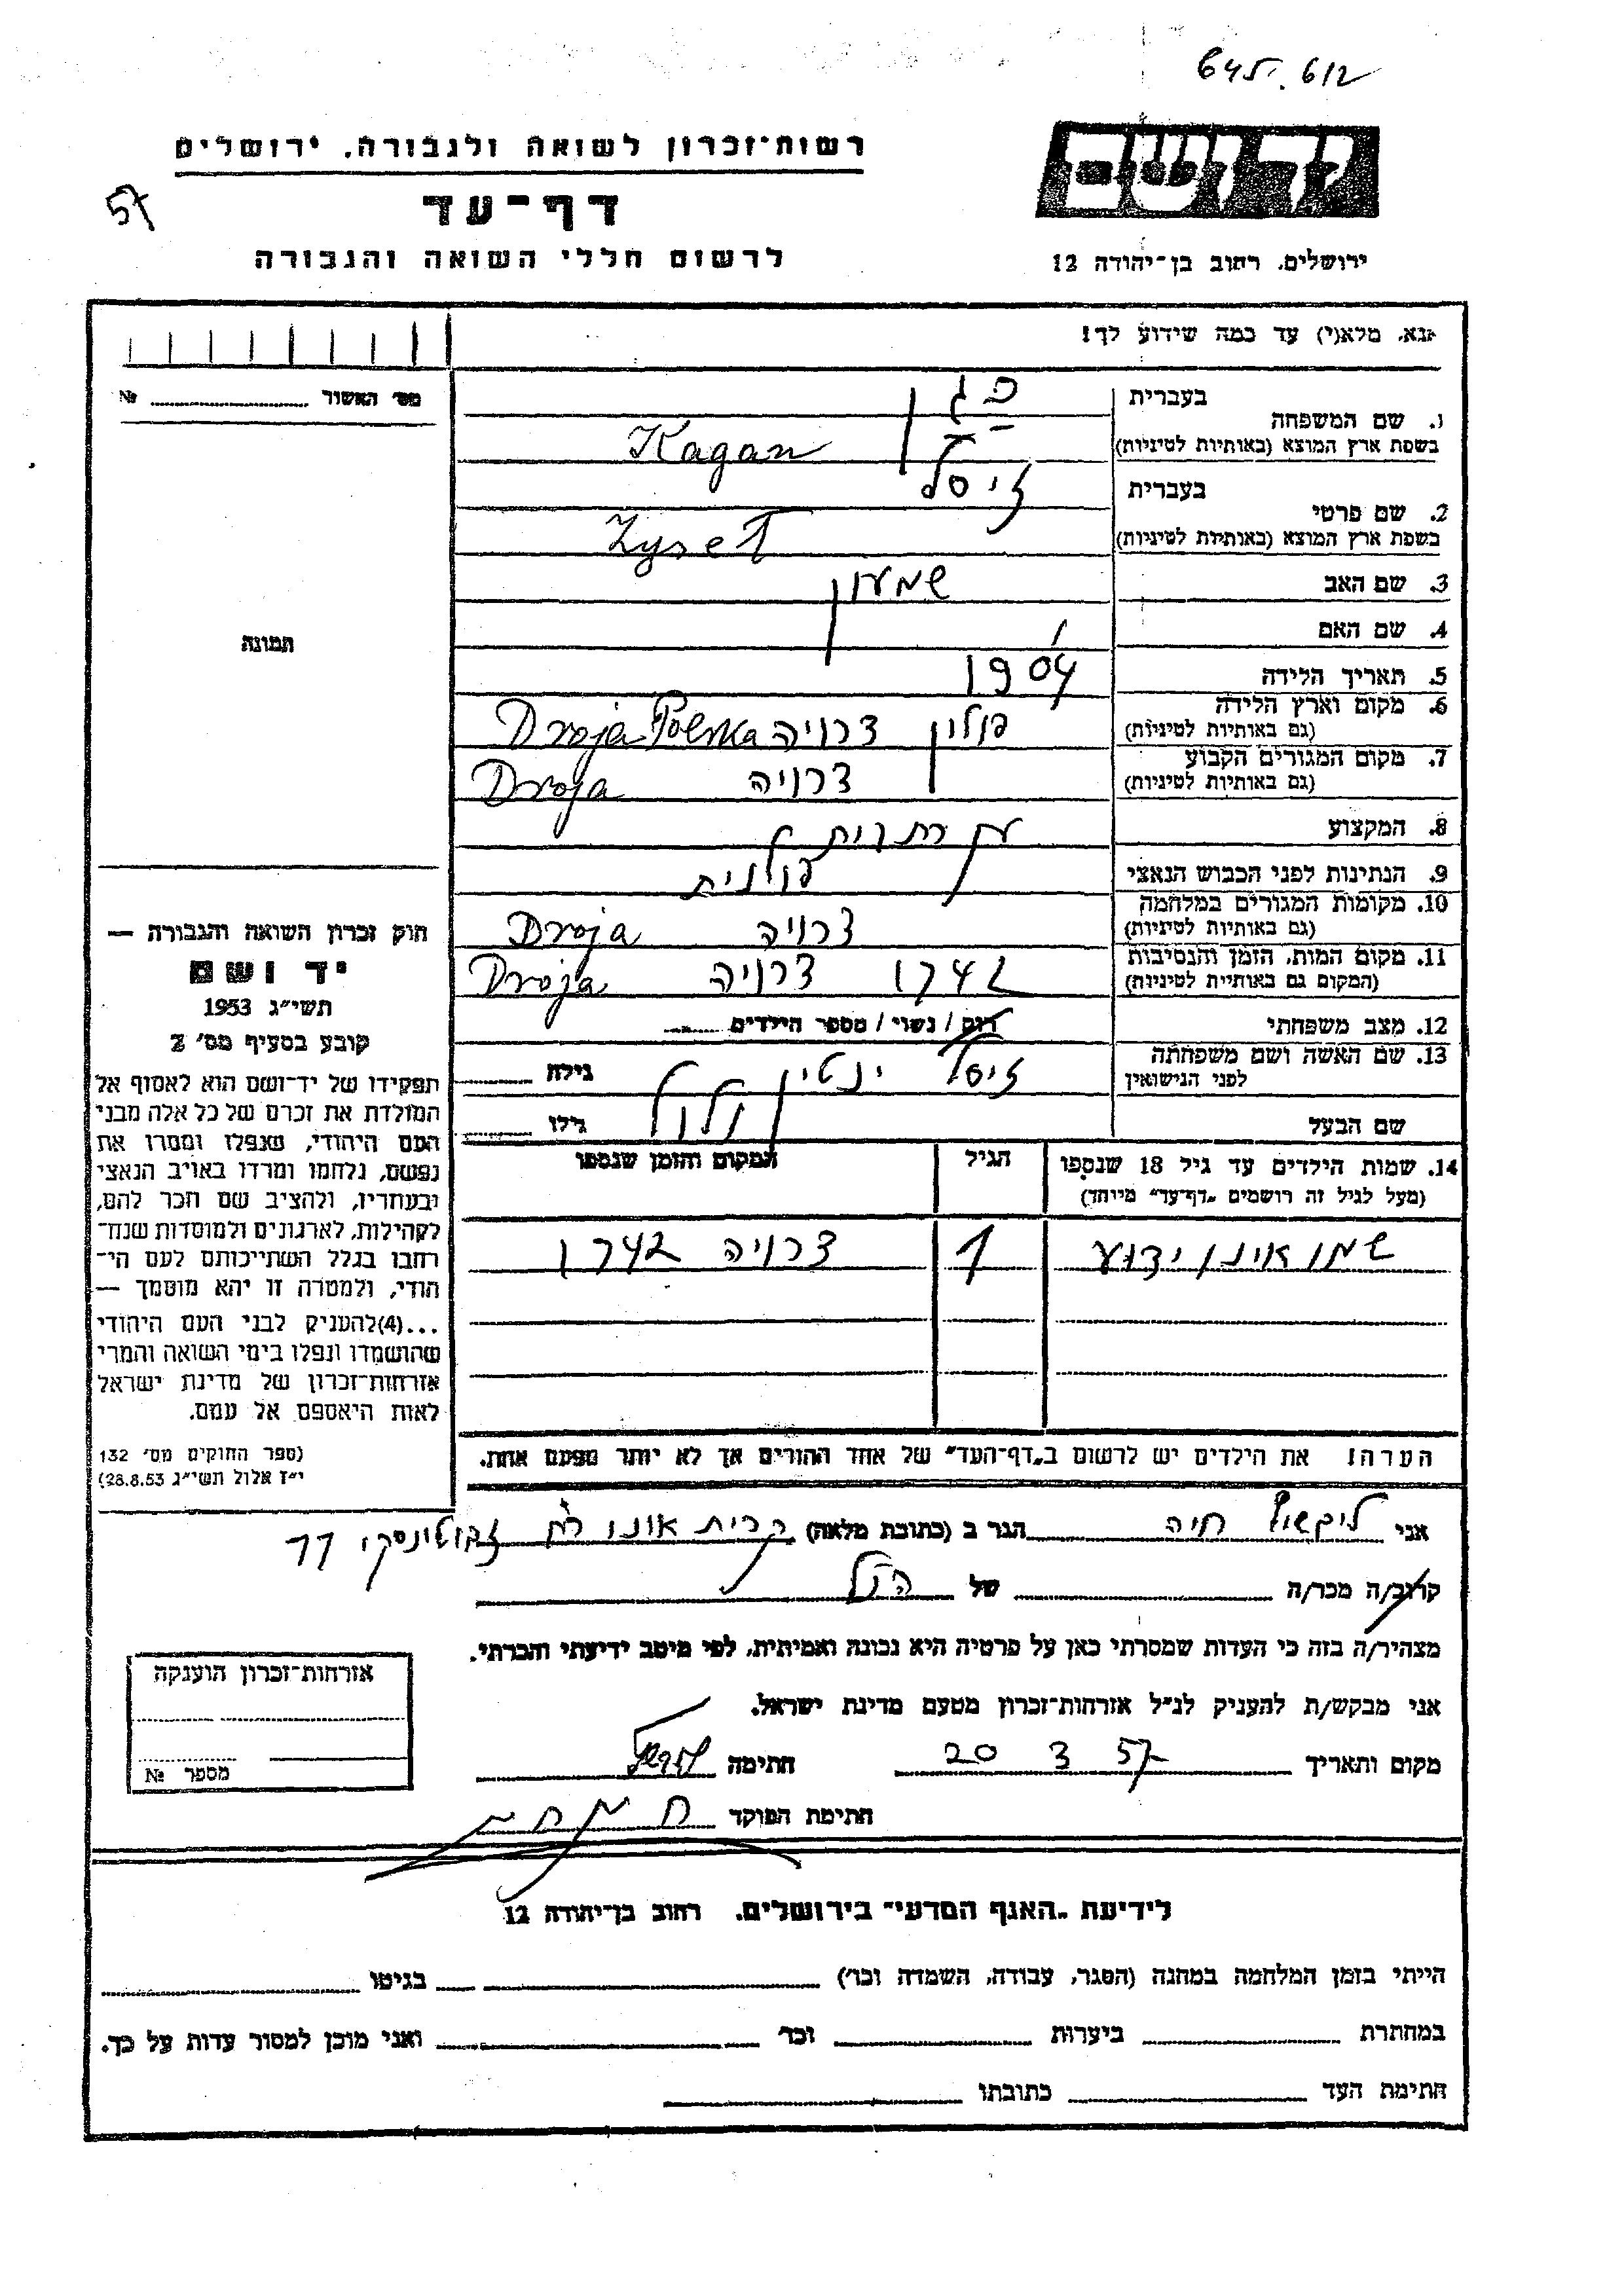 645. 612
רשות־זכרון לשואה ולגבורה. ירושלים
57
דף־עד
לרשום חללי השואה והגבורה
יד ושם
ירושלים. רחוב בן־יהודה 12
נא. מלא(י) עד כמה שידוע לך!
מס׳ האשור № 
1. שם המשפחה
בעברית
כגן
בשפת ארץ המוצא (באותיות לטיניות) Kagan
2. שם פרטי
בעברית זיסל
בשפת ארץ המוצא (באותיות לטיניות) Zysel
3. שם האב שמעון
4. שם האם
5. תאריך הלידה 1904
6. מקום וארץ הלידה
(גם באותיות לטיניות) פולין דרויה Droja Polska
7. מקום המגורים הקבוע
(גם באותיות לטיניות) דרויה Droja
8. המקצוע
9. הנתינות לפני הכבוש הנאצי פולנית
10. מקומות המגורים במלחמה
(גם באותיות לטיניות) דרויה Droja
11. מקום המות, הזמן והנסיבות
(המקום גם באותיות לטיניות) 1942 דרויה Droja
12. מצב משפחתי רוק / נשוי / מספר הילדים
13. שם האשה ושם משפחתה
לפני הנישואין זיסל גילה
שם הבעל גילו
14. שמות הילדים עד גיל 18 שנספו
(מעל לגיל זה רושמים „דף־עד״ מייוחד)
הגיל
המקום והזמן שנספו
שמו אינו ידוע 1 דרויה 1942
הערה! את הילדים יש לרשום ב„דף־העד״ של אחד ההורים אך לא יותר מפעם אחת.
תמונה
חוק זכרון השואה והגבורה —
יד ושם
תשי״ג 1953
קובע בסעיף מס׳ 2
תפקידו של יד־ושם הוא לאסוף אל
המולדת את זכרם של כל אלה מבני
העם היהודי, שנפלו ומסרו את
נפשם, נלחמו ומרדו באויב הנאצי
ובעוזריו, ולהציב שם וזכר להם,
לקהילות, לארגונים ולמוסדות שנח־
רבו בגלל השתייכותם לעם הי־
הודי, ולמטרה זו יהא מוסמך —
...(4)להעניק לבני העם היהודי
שהושמדו ונפלו בימי השואה והמרי
אזרחות־זכרון של מדינת ישראל
לאות היאספם אל עמם.
(ספר החוקים מס׳ 132
י״ז אלול תשי״ג 28.8.53)
אני חיה הגר ב (כתובת מלאה) קרית אונו רח ז׳בוטינסקי
קרוב/ה מכר/ה של הנ״ל
מצהיר/ה בזה כי העדות שמסרתי כאן על פרטיה היא נכונה ואמיתית, לפי מיטב ידיעתי והכרתי.
אני מבקש/ת להעניק לנ״ל אזרחות־זכרון מטעם מדינת ישראל.
מקום ותאריך 20 3 57 חתימה
חתימת הפוקד
אזרחות־זכרון הוענקה
מספר №
לידיעת „האגף המדעי״ בירושלים. רחוב בן־יהודה 12
הייתי בזמן המלחמה במחנה (הסגר, עבודה, השמדה וכו׳) בגיטו
במחתרת ביערות וכו׳ ואני מוכן למסור עדות על כך.
חתימת העד כתובתו